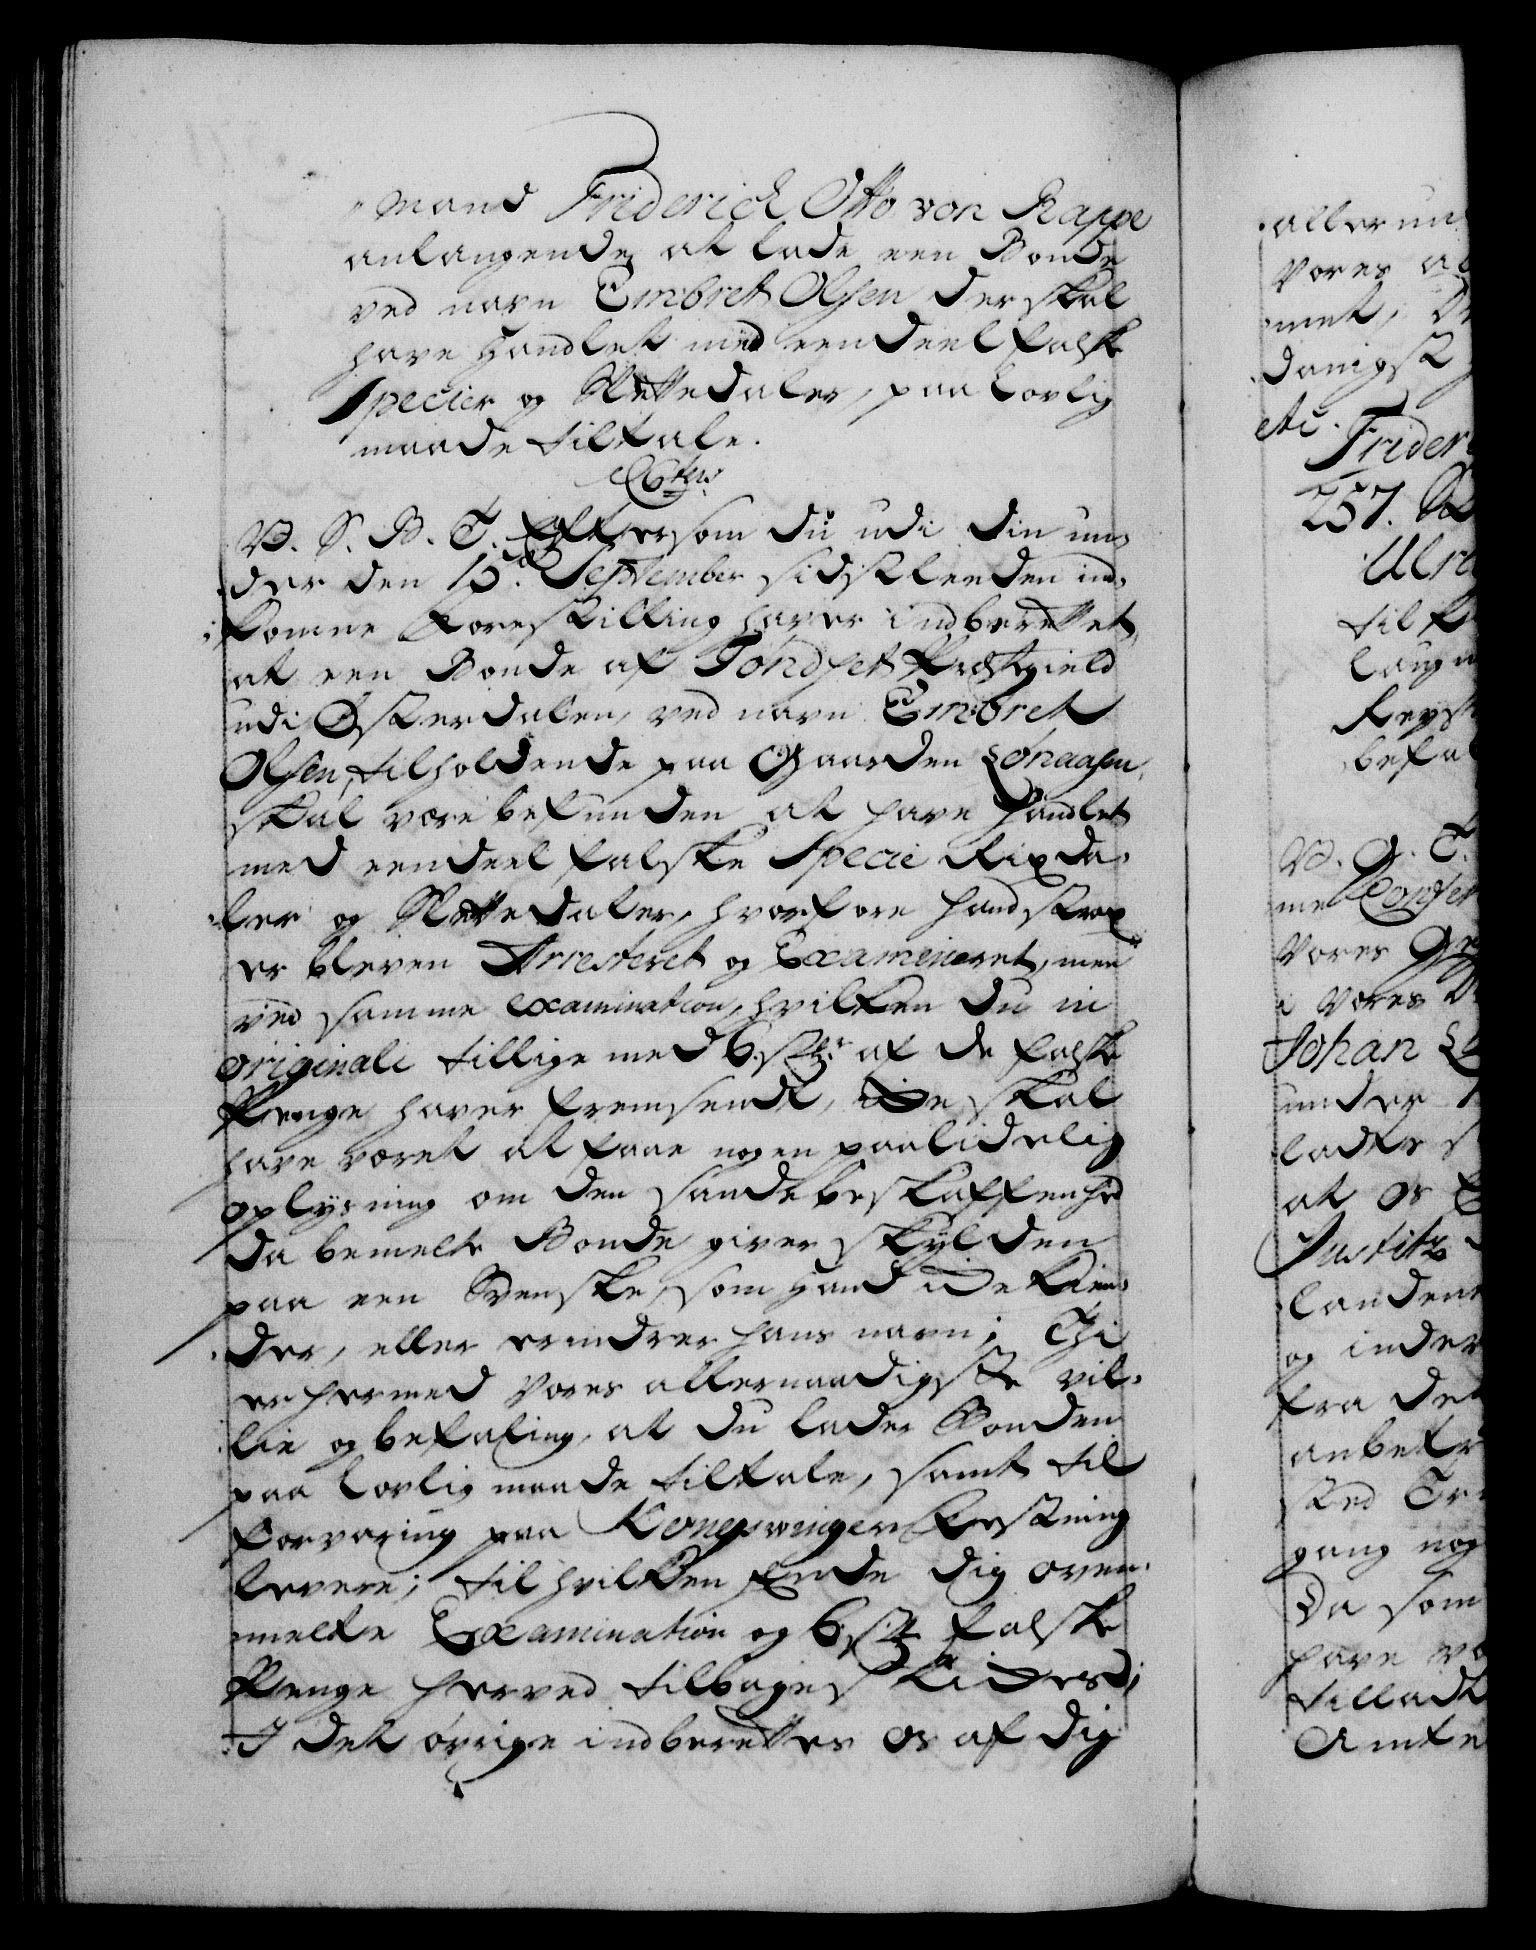 mand Friderich Otto von Rappe
anlangende, at lade een Bonde
ved navn Embret Olsen der skal
have handlet med eendeel falske
Specier og Slettedaler, paa lovlig
maade tiltale.
V. S. B. T. Eftersom du udi din un-
der den 15de September sidstleeden ind-
komne Forestilling haver indberettet,
at een Bonde af Tøndset Præstegield
udi Østerdalen, ved navn Embret
Olsen, tilholdende paa Gaarden
skal være befunden at have handlet
med eendeel falske Specie Rixda-
ler og Slettedaler, hvorfore hand strax
er bleven Arresteret og Examineret, men
ved samme examination, hvilken du in
originali tillige med 6 stkr af de falske
Penge haver fremsendt, icke skal
have været at faae nogen paalidelig
oplysning om den sande beskaffenhed
da bemelte Bonde giver skylden
paa een Svenske, som hand icke kien-
der, eller erindrer hans navn; Thi
er hermed Vores allernaadigste vil-
lie og befaling, at du lader Bonden
paa lovlig maade tiltale, samt til
forvaring paa Kongswinger Festning
levere; til hvilken Ende dig oven-
melte Examination og 6 stk falske
Penge herved tilbageskickes;
I det øvrige indberettes os af dig
aller un
Vores
met,
danigst
etc.
Frider
257.
Ulr
til
laug
befa
V. G. T.
me
Vores
i Vores
Johan
under
ladt
at os
Justitz
landene
og inder
fra de
anbetr
sted
gang nog
da som
have
tilladt
Amte